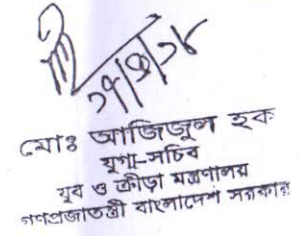 মোঃ আজিজুল হক
যুগ্ম-সচিব
যুব ও ক্রীড়া মন্ত্রণালয়
গণপ্রজাতন্ত্রী বাংলাদেশ সরকার